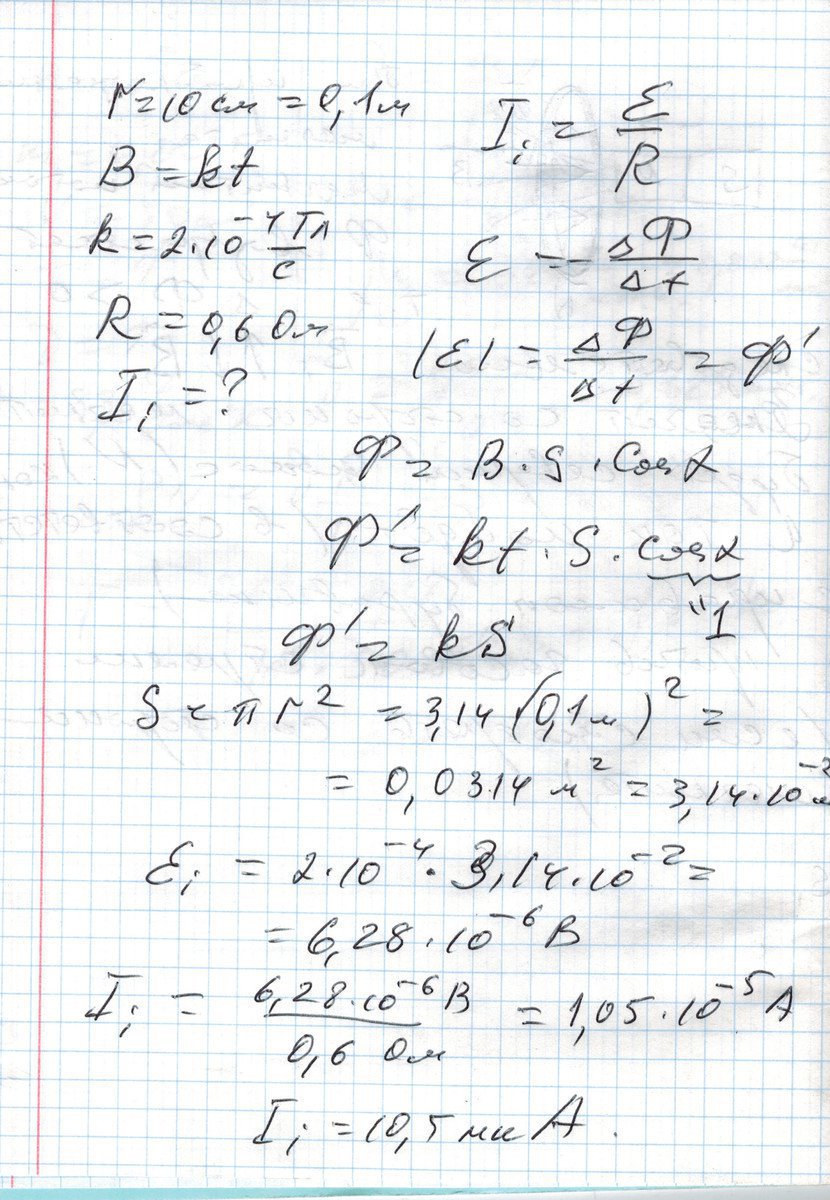 r = 10 см = 0,1 м
B = kt
k = 2·10⁻⁴ Тл/с
R = 0,6 Ом
I_i = ?
I_i = ε/R
ε = -ΔФ/Δt
|ε| = ΔФ/Δt = Ф'
Ф = B·S·cosα
Ф' = kt·S·cosα
"1
Ф' = kS
S = πr² = 3,14 (0,1 м)² =
= 0,0314 м² = 3,14·10⁻² м
ε_i = 2·10⁻⁴·3,14·10⁻² =
= 6,28·10⁻⁶ В
I_i = 6,28·10⁻⁶ В / 0,6 Ом = 1,05·10⁻⁵ А
I_i = 10,5 мкА.